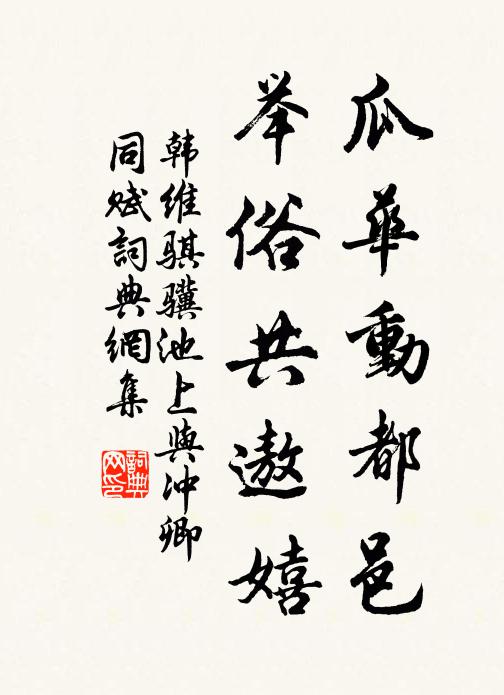 瓜华動都邑
举俗共遨嬉
韩维骐骥池上與冲卿
同赋詞典網集
詞典
网印